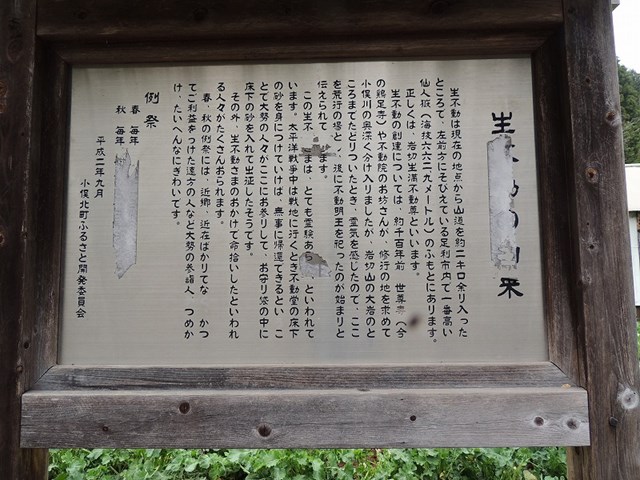 生不動の由来
生不動は現在の地点から山道を約二キロ余り入った
ところで、左前方にそびえている足利市内で一番高い
仙人嶽(海抜六六二九メートル)のふもとにあります。
正しくは、岩切生満不動尊といいます。
生不動の創建については、約千百年前 世尊寺(今
の鶏足寺)や不動院のお坊さんが、修行の地を求めて
小俣川の奥深く分け入りましたが、岩切山の大岩のと
ころまでたどりついたとき、霊気を感じたので、ここ
を荒行の場と 、後に不動明王を祀ったのが始まりと
伝えられて ます。
この生不 まは、とても霊験あら といわれて
います。太平洋戦争中は戦地に行くとき不動堂の床下
の砂を身につけていけば、無事に帰還できるとい こ
とて大勢の人々がここにお参りして、お守り袋の中に
床下の砂を入れて出征したそうです。
その外、生不動さまのおかげで命拾いしたといわれ
る人々がたくさんおられます。
春、秋の例祭には、近郷、近在ばかりでな かつ
てご利益をうけた遠方の人など大勢の参詣人 つめか
け、たいへんなにぎわいです。
例祭
春 毎年
秋 毎年
平成二年九月
小俣北町ふるさと開発委員会